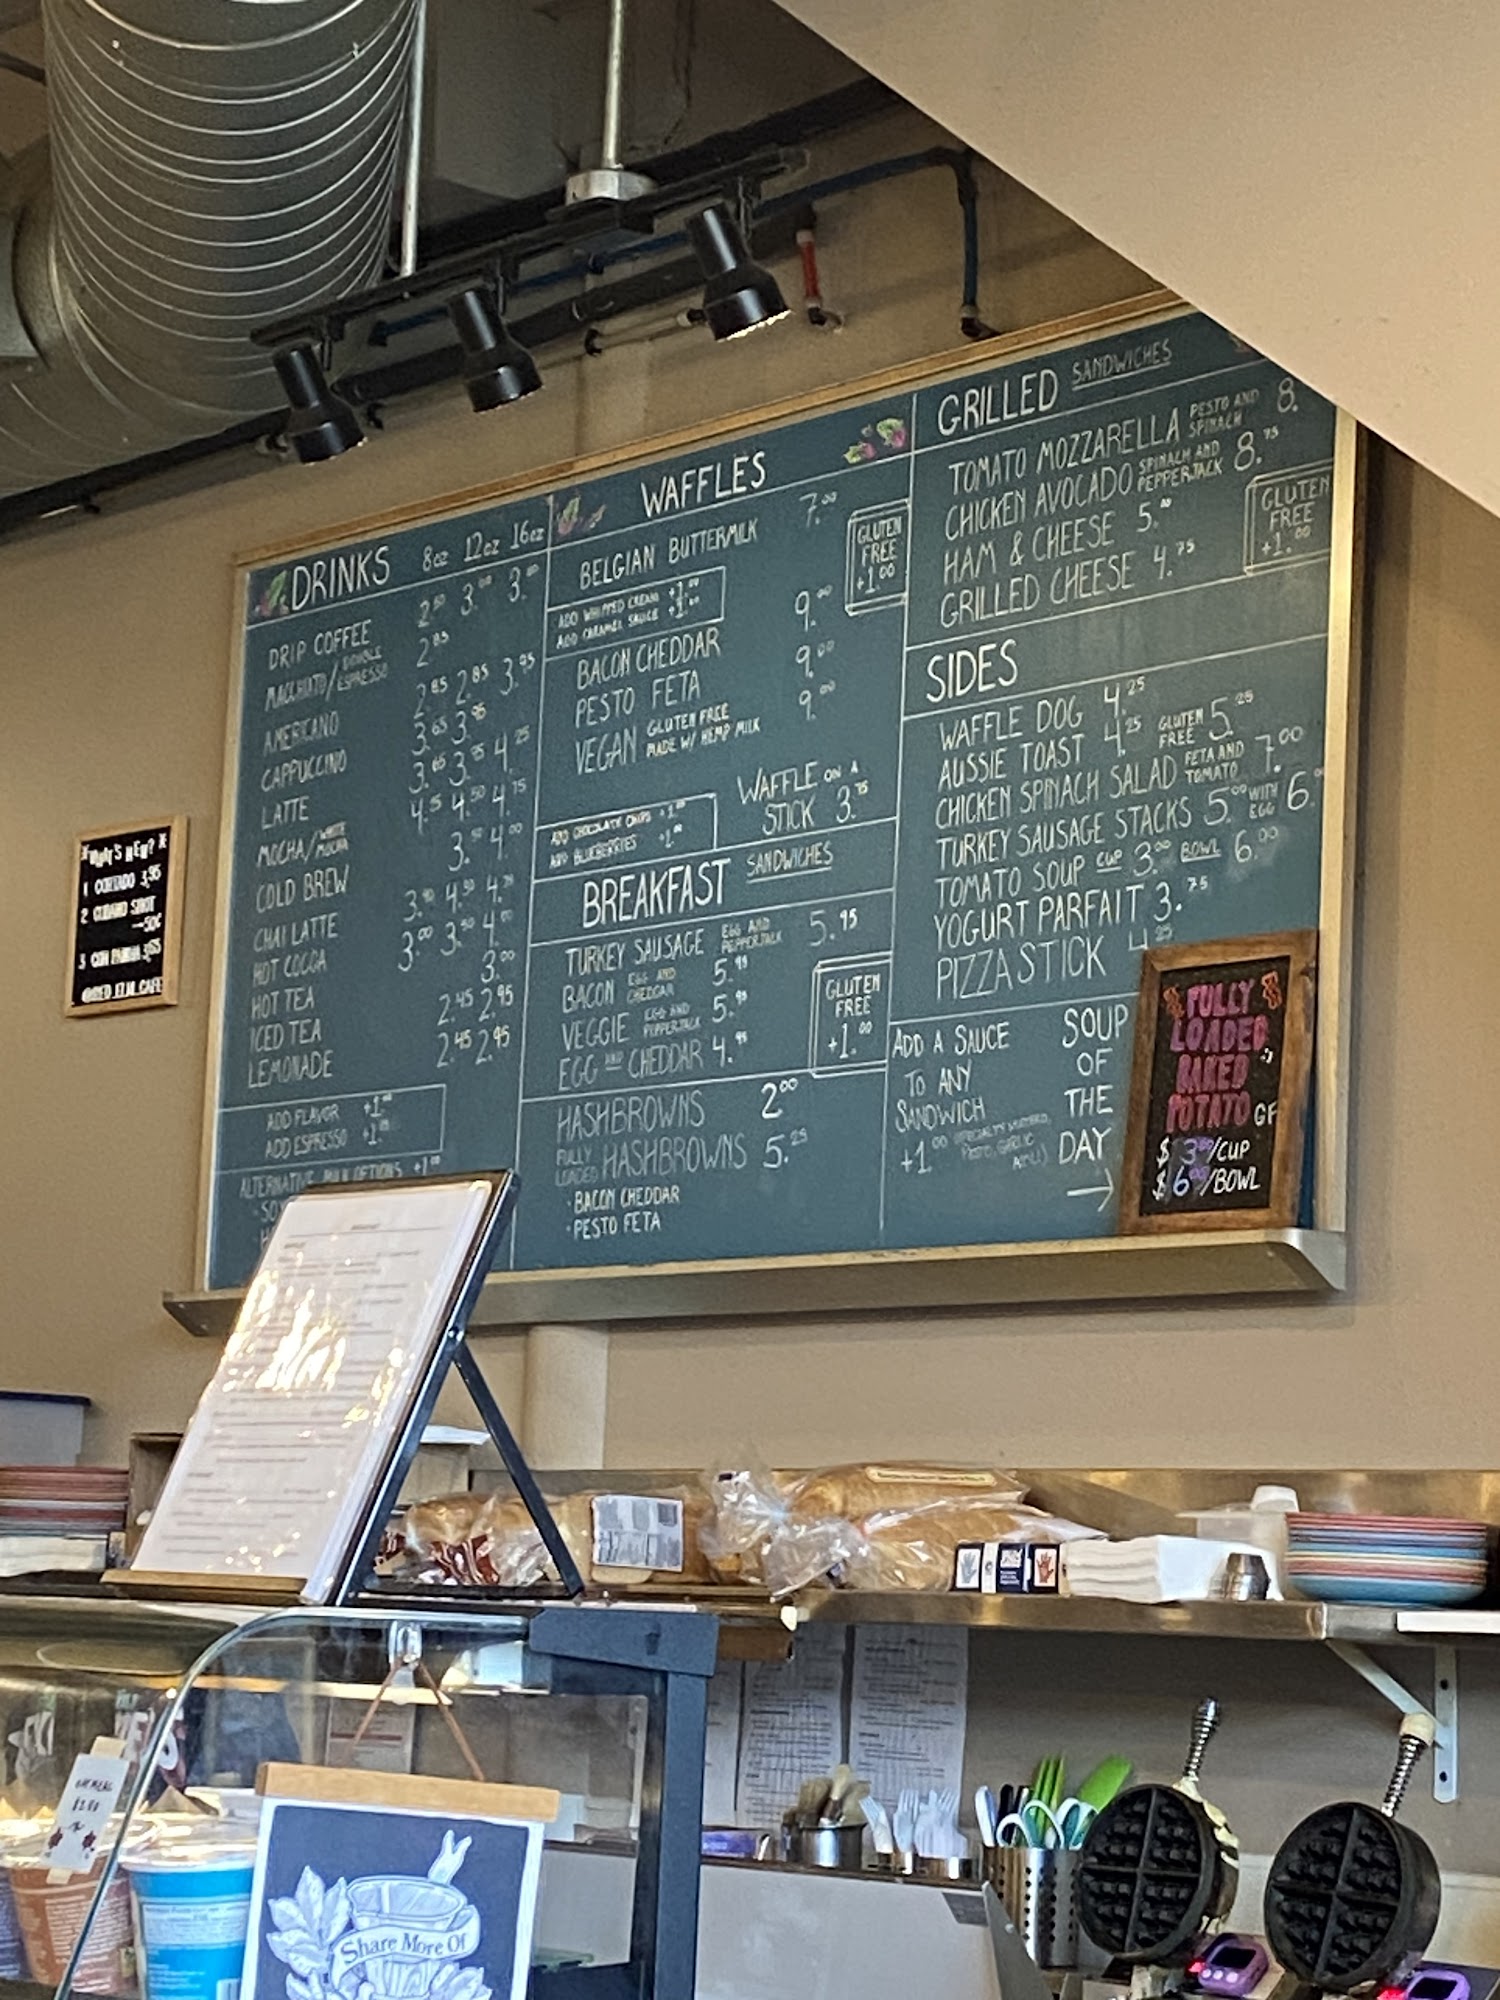 DRINKS 8oz 12oz 16oz
DRIP COFFEE 2.50 3.00 3.00
MACCHIATO/DOUBLE ESPRESSO 2.85
AMERICANO 2.85 2.85 3.95
CAPPUCCINO 3.65 3.95
LATTE 3.65 3.95 4.25
MOCHA/WHITE MOCHA 4.25 4.50 4.75
COLD BREW 3.50 4.00
CHAI LATTE 3.90 4.50 4.75
HOT COCOA 3.00 3.50 4.00
HOT TEA 3.00
ICED TEA 2.45 2.95
LEMONADE 2.45 2.95
ADD FLAVOR +1.00
ADD ESPRESSO +1.00
ALTERNATIVE MILK OPTIONS +1.00
WAFFLES
BELGIAN BUTTERMILK 7.00
GLUTEN
FREE
+1.00
ADD WHIPPED CREAM +1.00
ADD CARAMEL SAUCE +1.00
BACON CHEDDAR 9.00
PESTO FETA 9.00
VEGAN GLUTEN FREE MADE W/ HEMP MILK 9.00
WAFFLE ON A
STICK 3.75
ADD CHOCOLATE CHIPS +1.00
ADD BLUEBERRIES +1.00
BREAKFAST SANDWICHES
TURKEY SAUSAGE EGG AND PEPPERJACK 5.95
BACON EGG AND CHEDDAR 5.95
VEGGIE EGG AND PEPPERJACK 5.95
EGG AND CHEDDAR 4.95
GLUTEN
FREE
+1.00
HASHBROWNS 2.00
FULLY LOADED HASHBROWNS 5.25
• BACON CHEDDAR
• PESTO FETA
GRILLED SANDWICHES
TOMATO MOZZARELLA PESTO AND SPINACH 8.
CHICKEN AVOCADO SPINACH AND PEPPERJACK 8.75
HAM & CHEESE 5.00
GRILLED CHEESE 4.75
GLUTEN
FREE
+1.00
SIDES
WAFFLE DOG 4.25
AUSSIE TOAST 4.25 GLUTEN FREE 5.25
CHICKEN SPINACH SALAD FETA AND TOMATO 7.00
TURKEY SAUSAGE STACKS 5.00 WITH EGG 6.
TOMATO SOUP CUP 3.00 BOWL 6.00
YOGURT PARFAIT 3.75
PIZZA STICK 4.25
ADD A SAUCE
TO ANY
SANDWICH
+1.00
SOUP
OF
THE
DAY
FULLY
LOADED
BAKED
POTATO GF
$3.00/CUP
$6.00/BOWL
WHAT'S NEW?
1 CORTADO 3.95
2 CUBANO SHOT
—50¢
3 CON PANNA 3.65
@RED.ELM.CAFE
OATMEAL
Share More Of